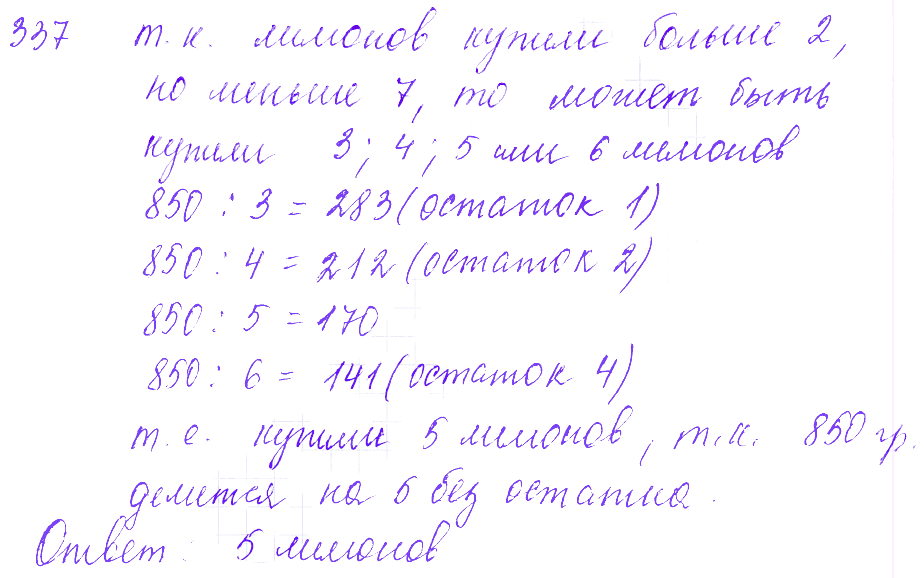 337 т.к. лимонов купили больше 2,
но меньше 7, то может быть
купили 3; 4; 5 или 6 лимонов
850 : 3 = 283 (остаток 1)
850 : 4 = 212 (остаток 2)
850 : 5 = 170
850 : 6 = 141 (остаток 4)
т.е. купили 5 лимонов, т.к. 850 гр.
делится на 5 без остатка.
Ответ: 5 лимонов